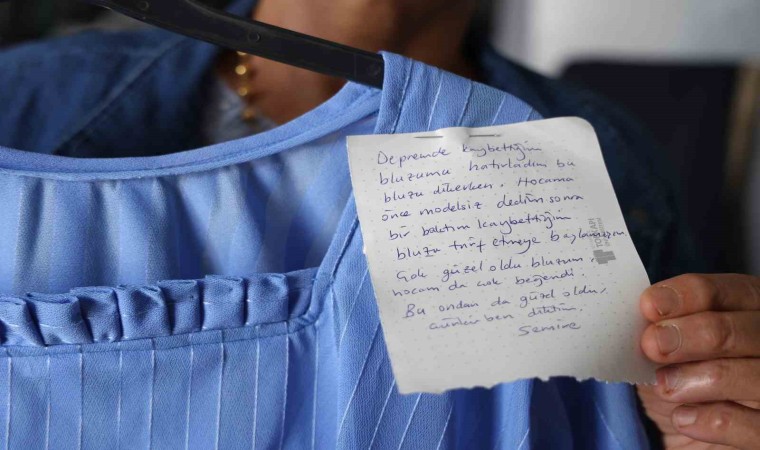 Depremde kaybettiğim
bluzumu hatırladım bu
bluzu dikerken. Hocama
önce modelsiz dedim sonra
bir baktım kaybettiğim
bluzu tarif etmeye başlamışım.
Çok güzel oldu bluzum,
hocam da çok beğendi.
Bu ondan da güzel oldu,
çünkü ben diktim.
Semine